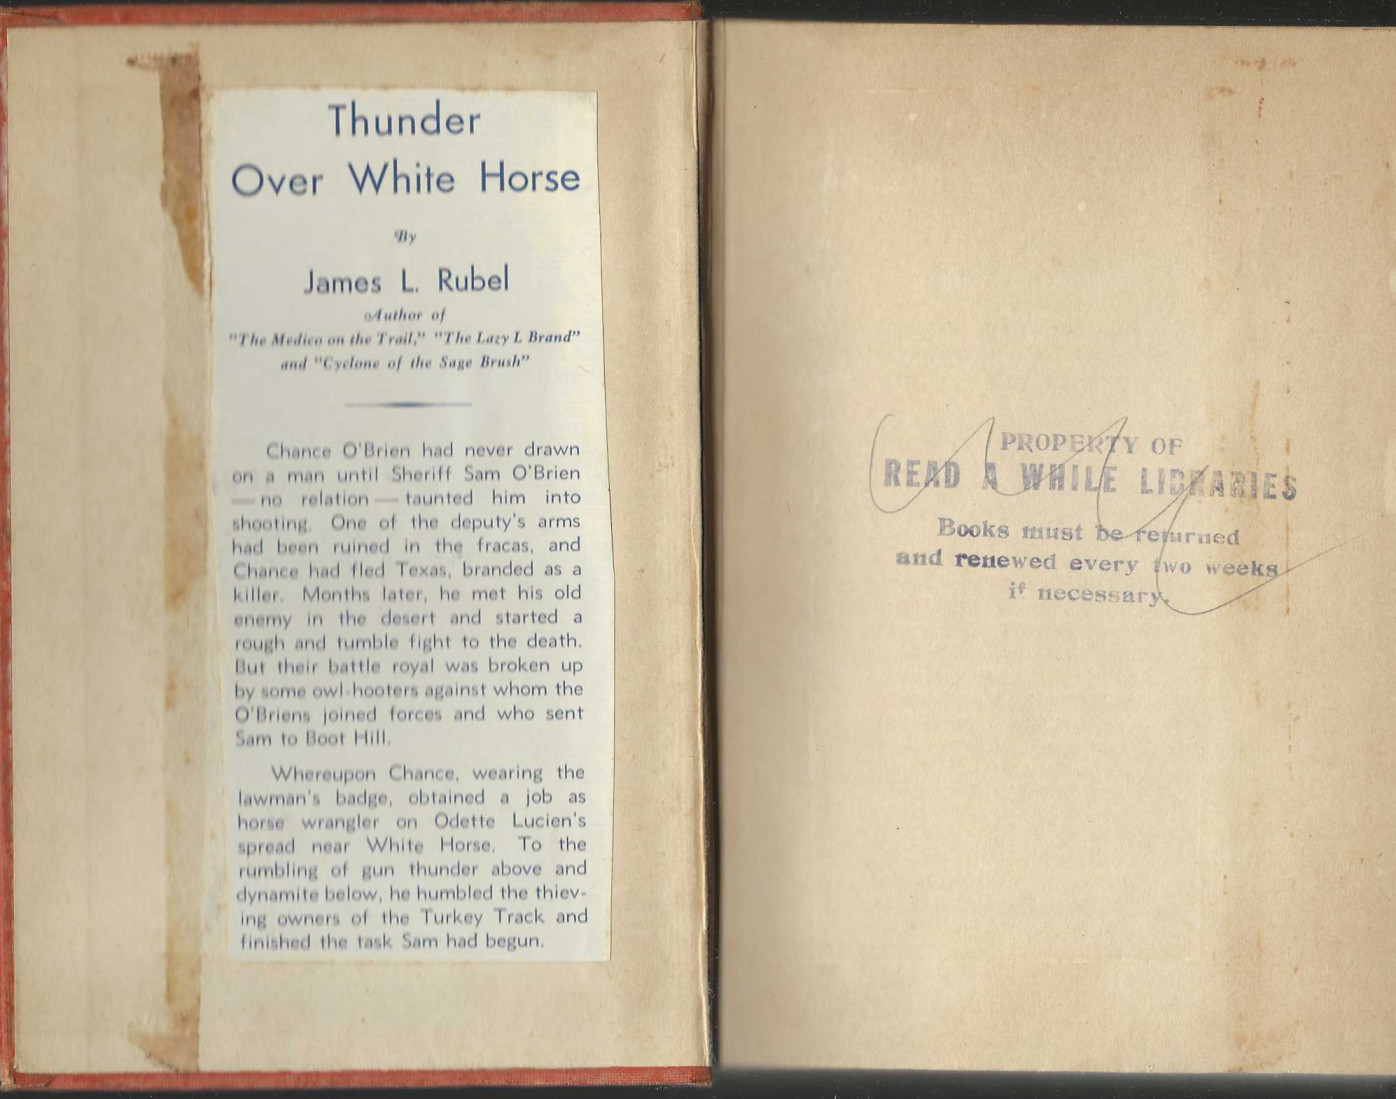 Thunder
Over White Horse
By
James L. Rubel
Author of
"The Medico on the Trail," "The Lazy L Brand"
and "Cyclone of the Sage Brush"
Chance O'Brien had never drawn
on a man until Sheriff Sam O'Brien
—no relation—taunted him into
shooting. One of the deputy's arms
had been ruined in the fracas, and
Chance had fled Texas, branded as a
killer. Months later, he met his old
enemy in the desert and started a
rough and tumble fight to the death.
But their battle royal was broken up
by some owl-hooters against whom the
O'Briens joined forces and who sent
Sam to Boot Hill.
Whereupon Chance, wearing the
lawman's badge, obtained a job as
horse wrangler on Odette Lucien's
spread near White Horse. To the
rumbling of gun thunder above and
dynamite below, he humbled the thiev-
ing owners of the Turkey Track and
finished the task Sam had begun.
PROPERTY OF
READ A WHILE LIBRARIES
Books must be returned
and renewed every two weeks
if necessary.